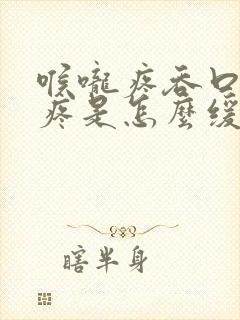 喉嚨疼吞口
疼是怎麼緩
瞎半身